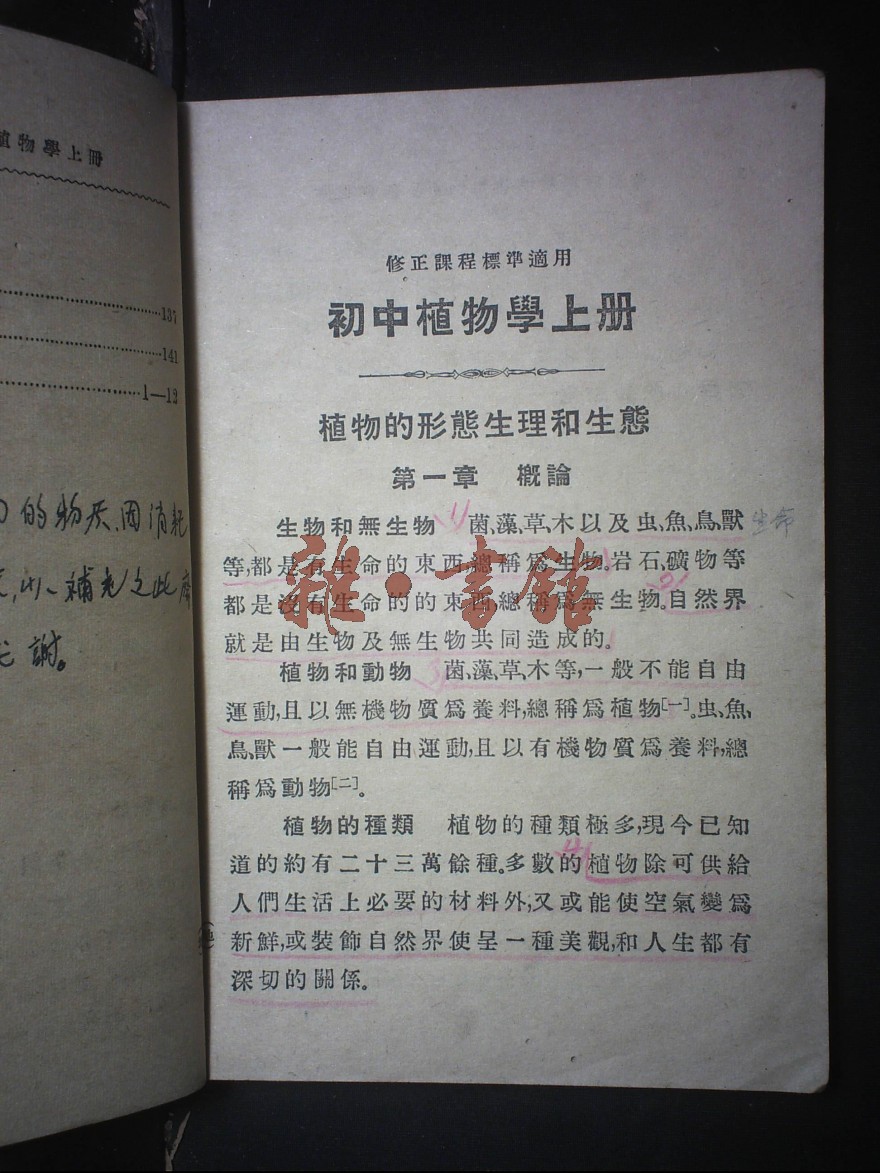 植物學上冊
137
141
1—12
的物质因消耗
補充之此
謝。
修正課程標準適用
初中植物學上册
植物的形態生理和生態
第一章　概論
生物和無生物　菌、藻、草、木以及虫、魚、鳥、獸
生命
等,都是有生命的東西,總稱爲生物。岩石、礦物等
都是沒有生命的的東西,總稱爲無生物。自然界
就是由生物及無生物共同造成的。
植物和動物　菌、藻、草、木等,一般不能自由
運動,且以無機物質爲養料,總稱爲植物[一]。虫、魚、
鳥、獸一般能自由運動,且以有機物質爲養料,總
稱爲動物[二]。
植物的種類　植物的種類極多,現今已知
道的約有二十三萬餘種。多數的植物除可供給
人們生活上必要的材料外,又或能使空氣變爲
新鮮,或裝飾自然界使呈一種美觀,和人生都有
深切的關係。
1)
2)
3)
4)
雜·書館